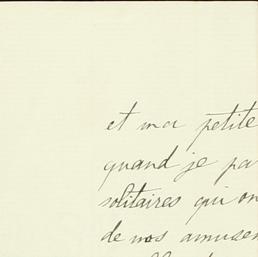 et ma petite
quand je pa
solitaires qui on
de nos amusem